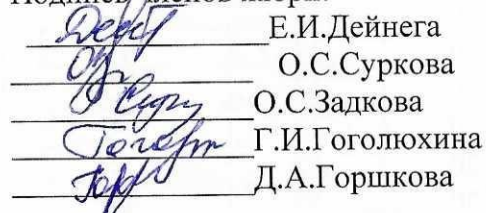 Подпись членов жюри:
Е.И.Дейнега
О.С.Суркова
О.С.Задкова
Г.И.Гоголюхина
Д.А.Горшкова